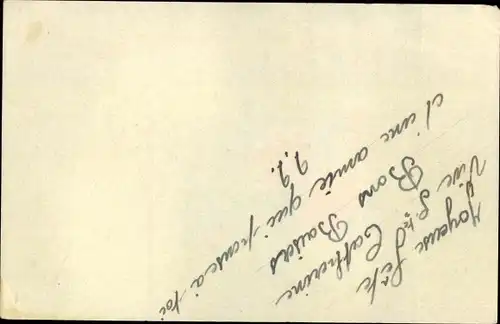 Joyeuse Fête
Vive Ste Catherine
Bons Baisers
d'une amie qui pense à toi